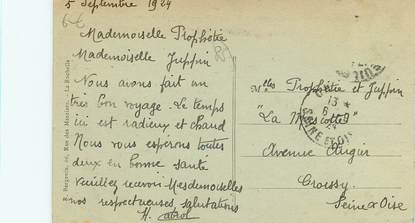 5 Septembre 1924
Mademoiselle Prophétie
Mademoiselle Juppin
Nous avons fait un
très bon voyage. Le temps
ici est radieux et chaud
Nous vous espérons toutes
deux en bonne santé
Veuillez recevoir Mesdemoiselles
nos respectueuses salutations
Bergevin, 26, Rue des Merciers, La Rochelle
Mlles Prophétie et Juppin
"La Mascotte"
Avenue
Croissy
Seine & Oise